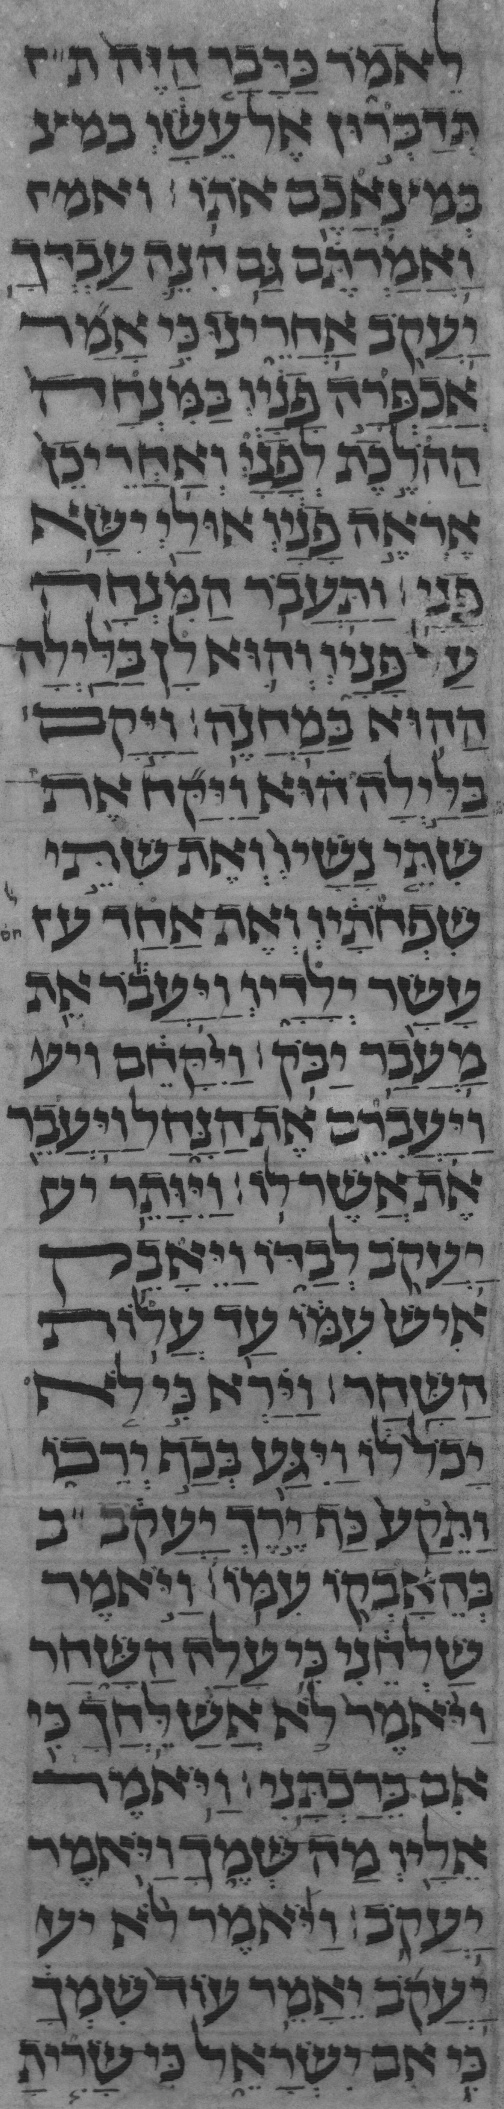 לֵאמֹר כַּדָּבָר הַזֶּה ת
תְּדַבְּרוּן אֶל עֵשָׂו במצ
בְּמֹצַאֲכֶם אֹתוֹ׃ ואמ
וַאֲמַרְתֶּם גַּם הִנֵּה עַבְדְּךָ
יַעֲקֹב אַחֲרֵינוּ כִּי אָמַר
אֲכַפְּרָה פָנָיו בַּמִּנְחָה
הַהֹלֶכֶת לְפָנָי וְאַחֲרֵי כֵן
אֶרְאֶה פָנָיו אוּלַי יִשָּׂא
פָנָי׃ וַתַּעֲבֹר הַמִּנְחָה
עַל פָּנָיו וְהוּא לָן בַּלַּיְלָה
הַהוּא בַּמַּחֲנֶה׃ וַיָּקָם
בַּלַּיְלָה הוּא וַיִּקַּח אֶת
שְׁתֵּי נָשָׁיו וְאֶת שְׁתֵּי
שִׁפְחֹתָיו וְאֶת אַחַד ע
עָשָׂר יְלָדָיו וַיַּעֲבֹר אֵת
מַעֲבַר יַבֹּק׃ וַיִּקָּחֵם ויע
וַיַּעֲבִרֵם אֶת הַנָּחַל וַיַּעֲבֵר
אֶת אֲשֶׁר לוֹ׃ וַיִּוָּתֵר יע
יַעֲקֹב לְבַדּוֹ וַיֵּאָבֵק
אִישׁ עִמּוֹ עַד עֲלוֹת
הַשָּׁחַר׃ וַיַּרְא כִּי לֹא
יָכֹל לוֹ וַיִּגַּע בְּכַף יְרֵכוֹ
וַתֵּקַע כַּף יֶרֶךְ יַעֲקֹב ב
בְּהֵאָבְקוֹ עִמּוֹ׃ וַיֹּאמֶר
שַׁלְּחֵנִי כִּי עָלָה הַשָּׁחַר
וַיֹּאמֶר לֹא אֲשַׁלֵּחֲךָ כִּי
אִם בֵּרַכְתָּנִי׃ וַיֹּאמֶר
אֵלָיו מַה שְּׁמֶךָ וַיֹּאמֶר
יַעֲקֹב׃ וַיֹּאמֶר לֹא יע
יַעֲקֹב יֵאָמֵר עוֹד שִׁמְךָ
כִּי אִם יִשְׂרָאֵל כִּי שָׂרִיתָ